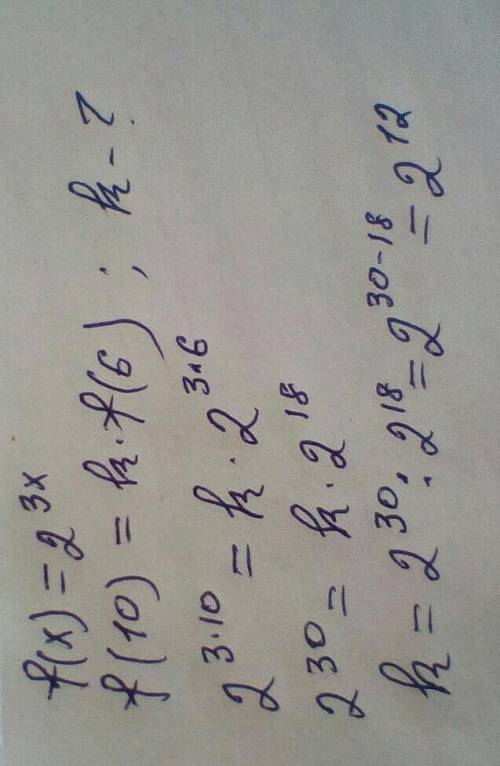 f(x) = 2^{3x}
f(10) = k · f(6) ; k - ?
2^{3·10} = k · 2^{3·6}
2^{30} = k · 2^{18}
k = 2^{30} : 2^{18} = 2^{30-18} = 2^{12}